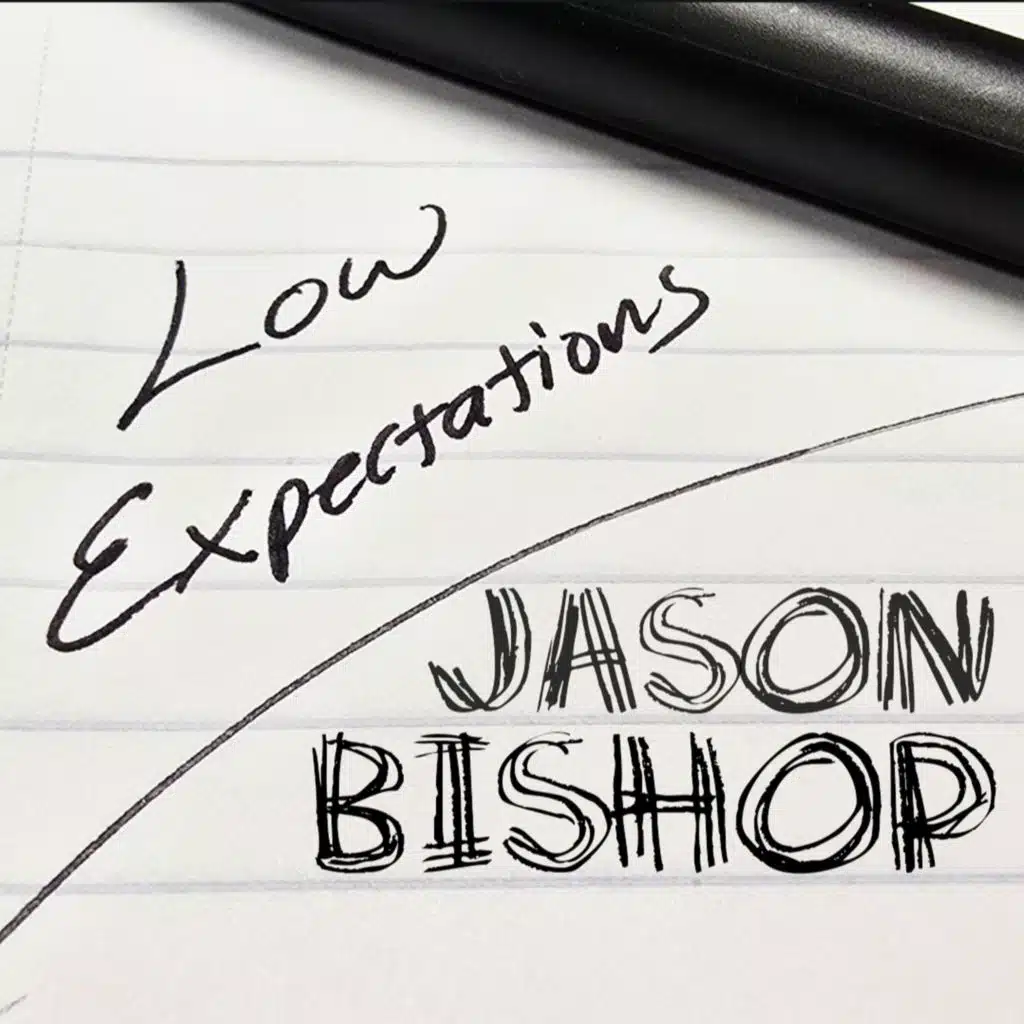 Low
Expectations
JASON
BISHOP